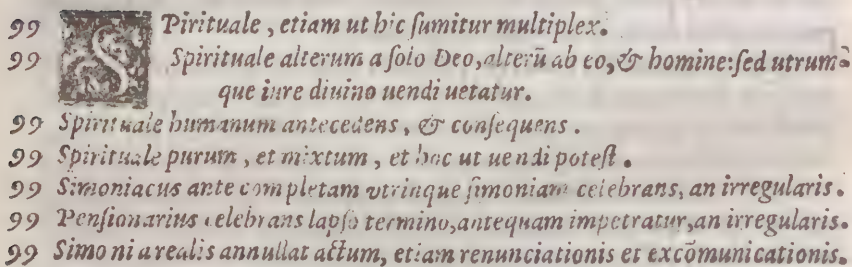 99 SPirituale, etiam ut hic ſumitur multiplex.
99 Spirituale alterum a ſolo Deo, alterũ ab eo, & homine: ſed utrum-
que iure diuino uendi uetatur.
99 Spirituale humanum antecedens, & conſequens.
99 Spirituale purum, et mixtum, et hoc ut uendi poteſt.
99 Simoniacus ante completam vtrinque ſimoniam celebrans, an irregularis.
99 Penſionarius celebrans lapſo termino, antequam impetratur, an irregularis.
99 Simonia realis annullat actum, etiam renunciationis et excõmunicationis.